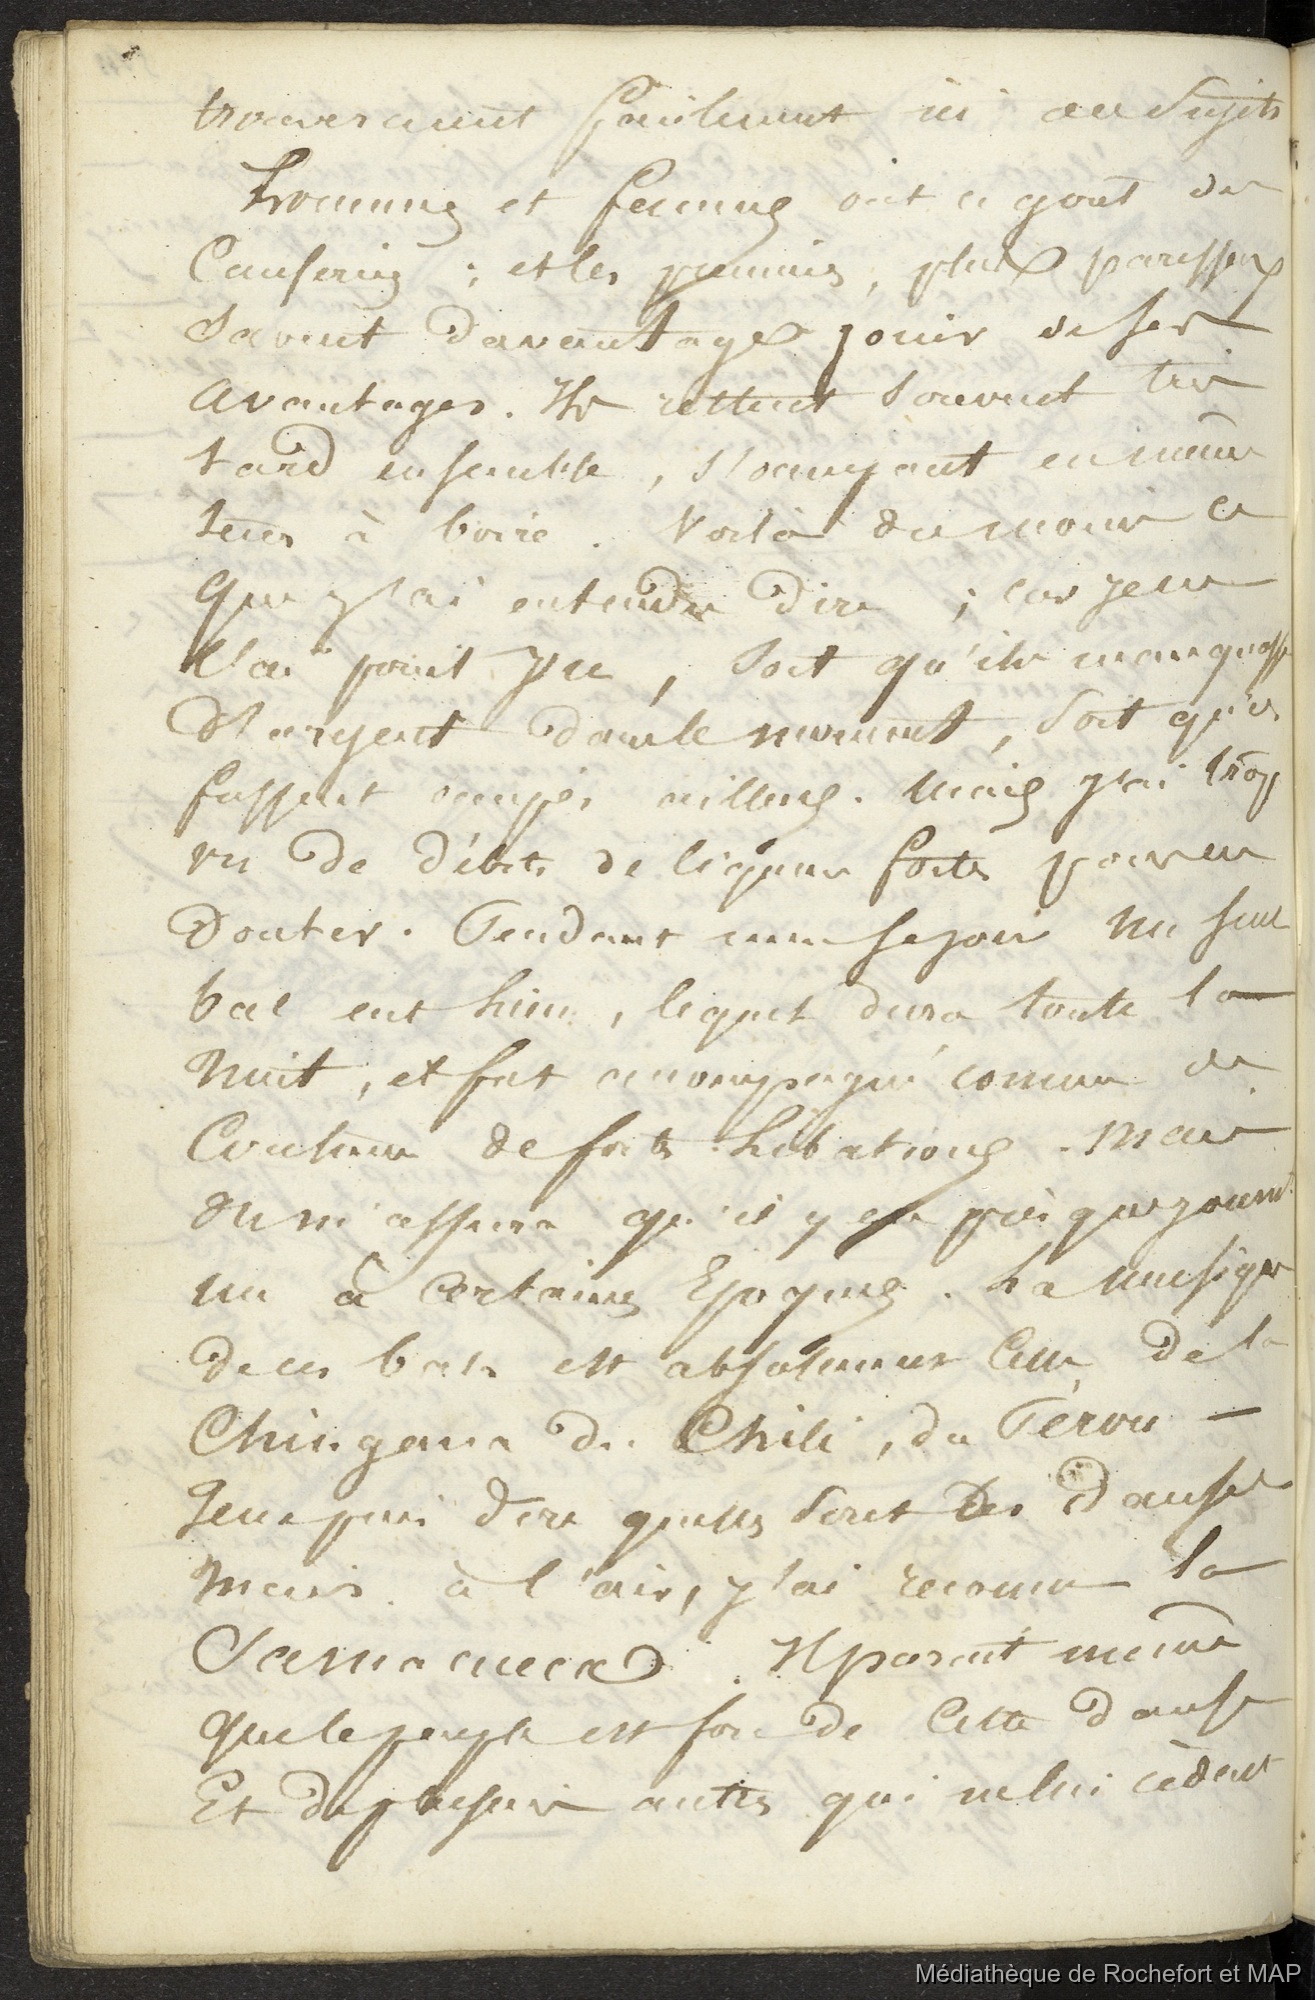 trouveraient facilement ici des Sujets
hommes et femmes ont ce gout de
Causeries ; et les premiers, plus paresseux
Savent davantage jouir de ses
avantages. Ils restent Souvent très
tard ensemble, s'occupant en même
tems à boire. Voilà du moins ce
que j'ai entendu dire ; car je ne
l'ai point vu, soit qu'ils manquassent
d'argent dans le moment, soit qu'ils
fussent occupés ailleurs. Mais j'ai trop
vu de débits de liqueurs fortes pour en
Douter. Pendant mon séjour un seul
bal eut lieu, lequel dura toute la
nuit, et fut accompagné comme de
Coutume de fortes libations. Mais
on m'assura qu'il y en a presque journ.
un à certaines Epoques. La musique
de ces bals est absolument Celle de la
Chingana du Chili, du Pérou —
Je ne puis dire quelles sont les danses
mais à l'air, j'ai reconnu la
Samacueca. Il parait même
que le peuple est fou de Cette danse
Et de plusieurs autres qui ne lui cèdent
Médiathèque de Rochefort et MAP